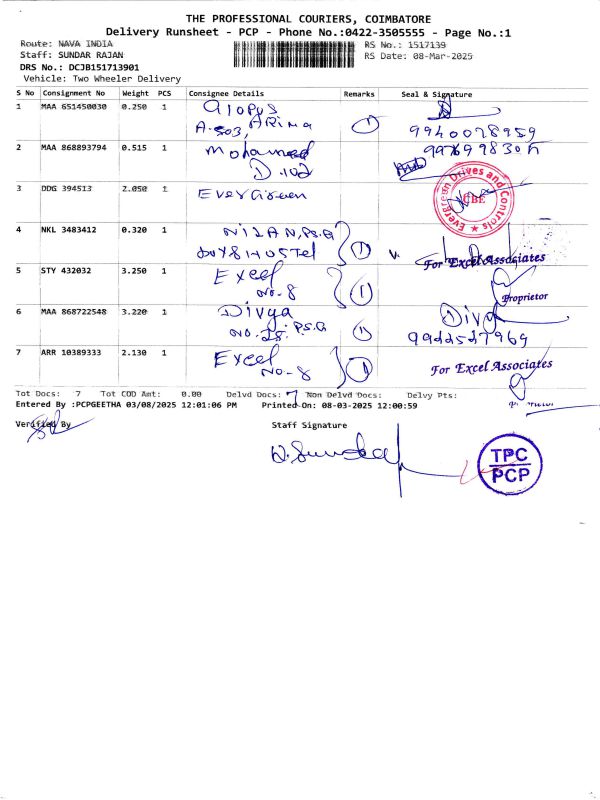 THE PROFESSIONAL COURIERS, COIMBATORE
Delivery Runsheet - PCP - Phone No.:0422-3505555 - Page No.:1
Route: NAVA INDIA RS No.: 1517139
Staff: SUNDAR RAJAN RS Date: 08-Mar-2025
DRS No.: DCJB151713901
Vehicle: Two Wheeler Delivery
S No Consignment No Weight PCS Consignee Details Remarks Seal & Signature
1 MAA 651450030 0.250 1
A-503, ARIMA 1 9940078959
2 MAA 868893794 0.515 1 Mohamed
D.102
3 DDG 394513 2.050 1 Evergreen Evergreen Drives and Controls CBE
4 NKL 3483412 0.320 1
1 For Excel Associates
5 STY 432032 3.250 1 Excel
No-8 1 Proprietor
6 MAA 868722548 3.220 1 Divya Divya
1 9942527969
7 ARR 10389333 2.130 1 Excel
No-8 1 For Excel Associates
Tot Docs: 7 Tot COD Amt: 0.00 Delvd Docs: 7 Non Delvd Docs: Delvy Pts:
Entered By :PCPGEETHA 03/08/2025 12:01:06 PM Printed On: 08-03-2025 12:00:59
Verified By Staff Signature
TPC
PCP